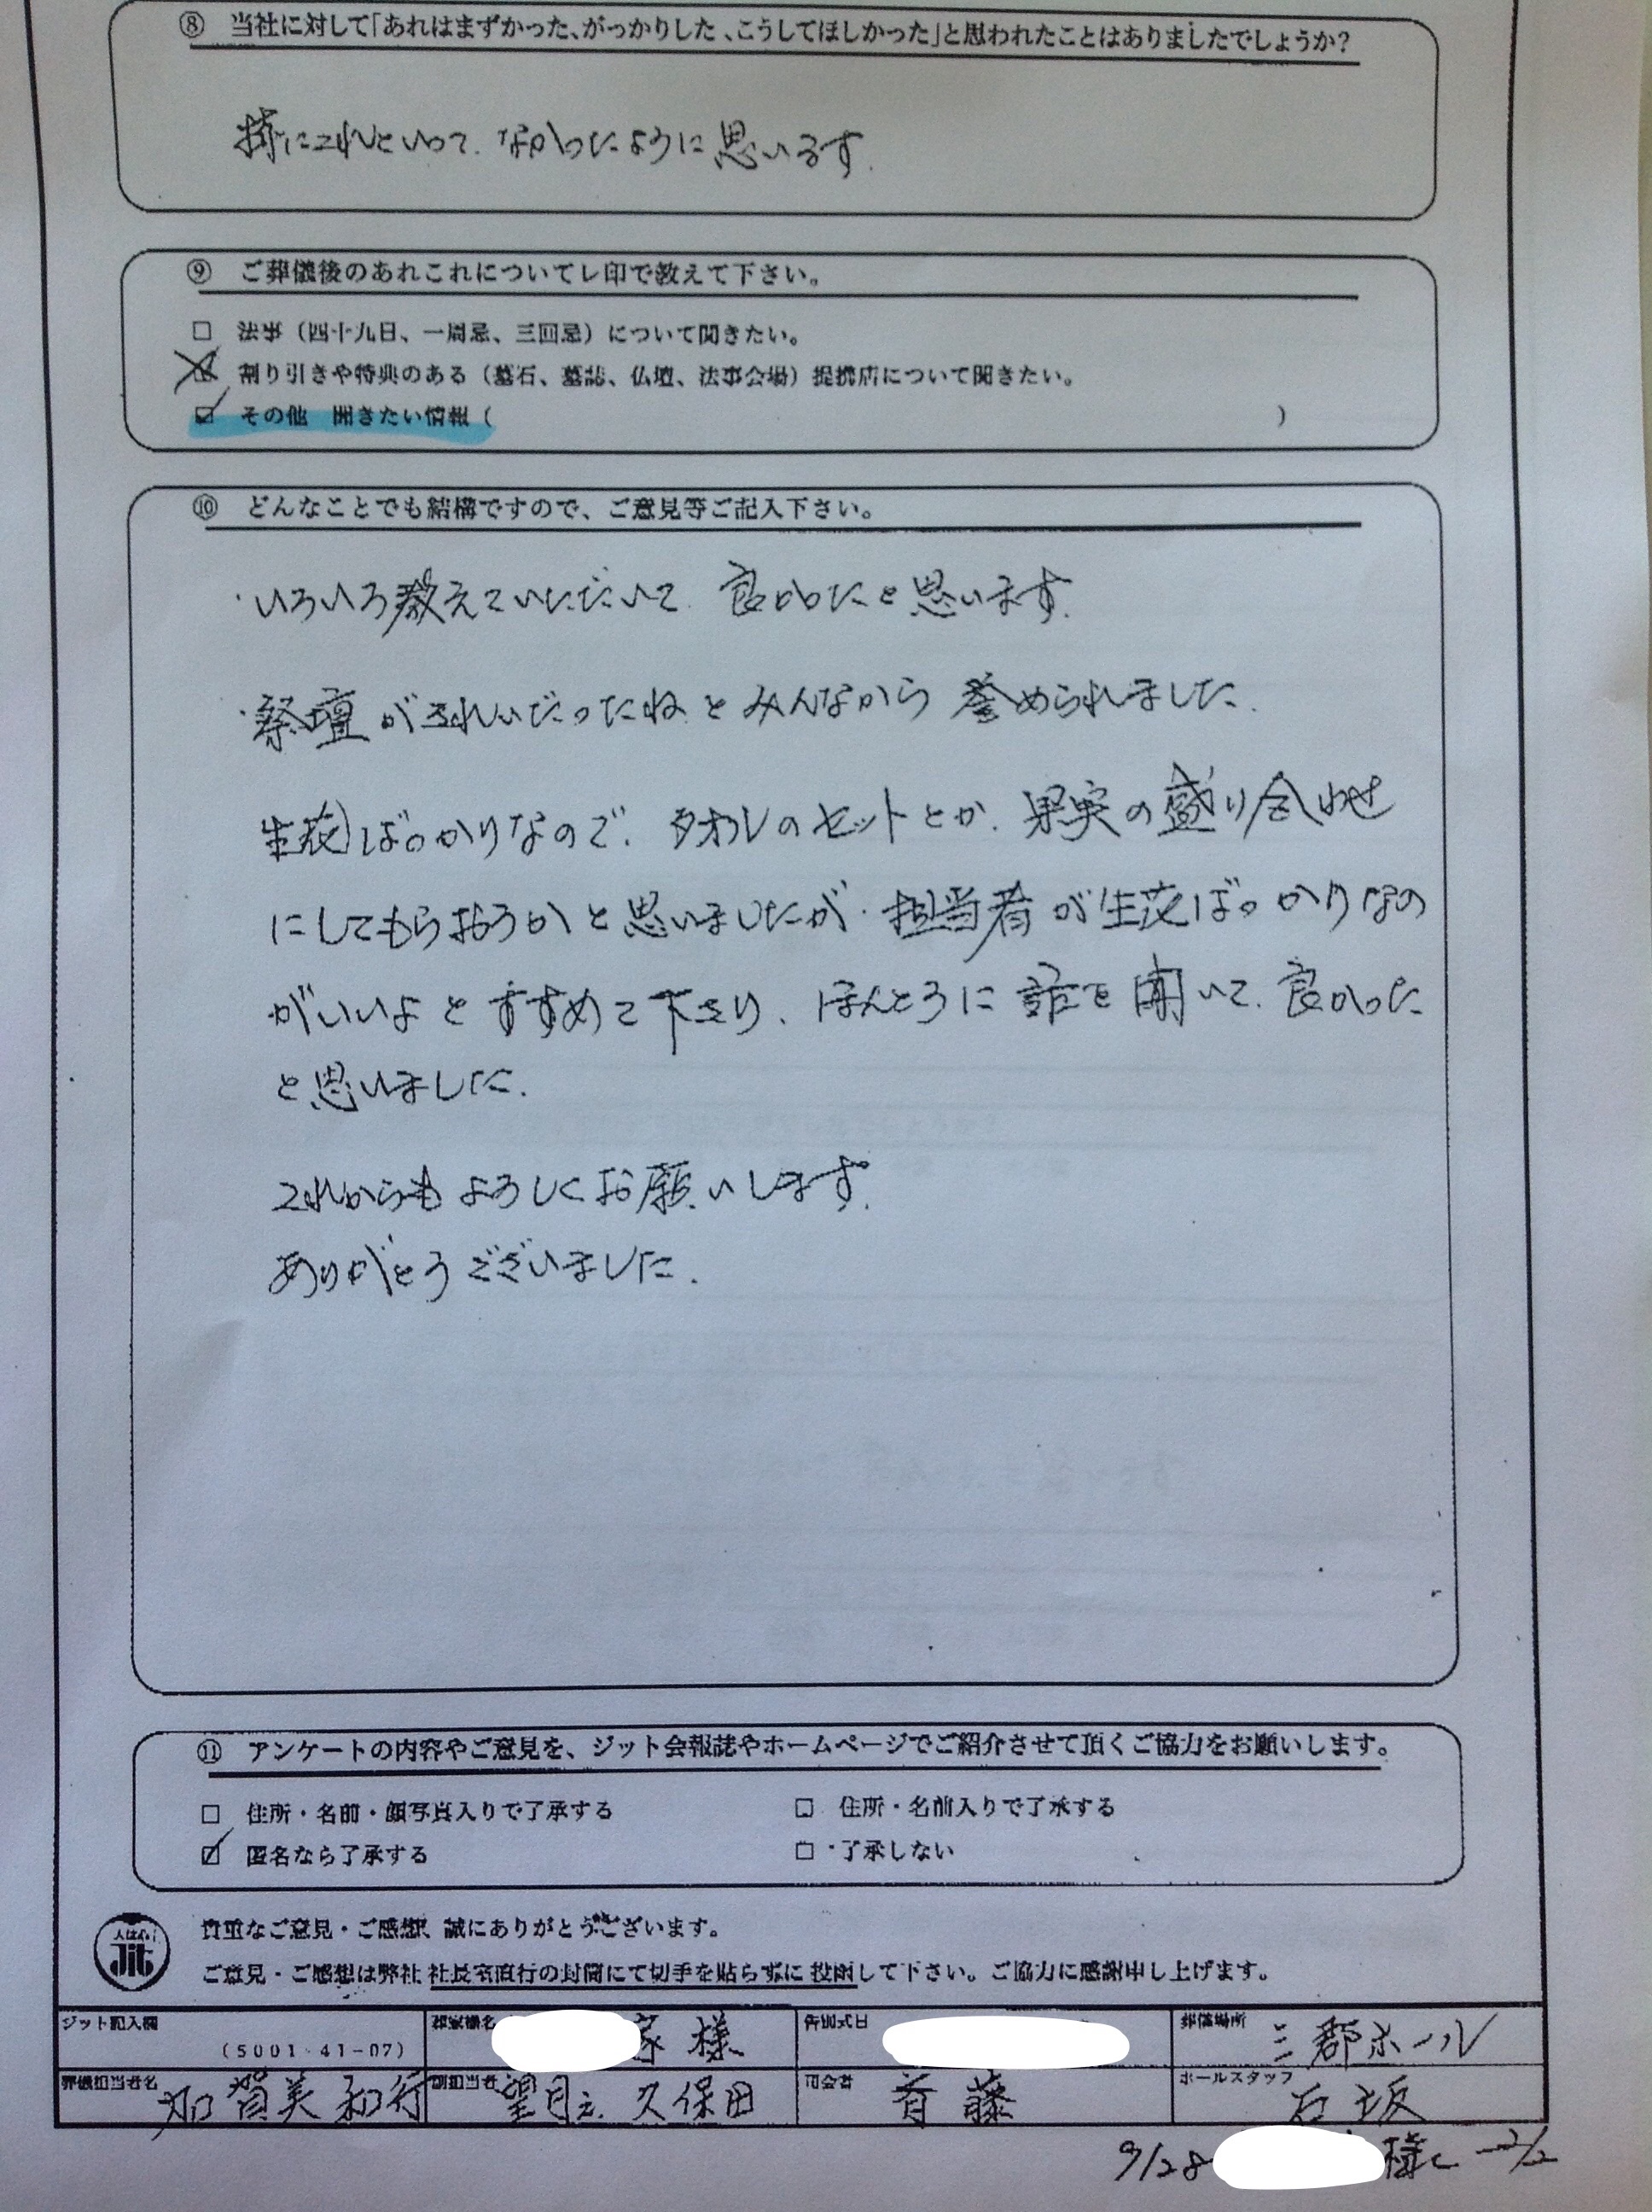 ⑧ 当社に対して「あれはまずかった、がっかりした、こうしてほしかった」と思われたことはありましたでしょうか?
特にこれといって、なかったように思います.
⑨ ご葬儀後のあれこれについてレ印で教えて下さい。
□ 法事（四十九日、一周忌、三回忌）について聞きたい。
割り引きや特典のある（墓石、墓誌、仏壇、法事会場）提携店について聞きたい。
☑ その他 聞きたい情報（ ）
⑩ どんなことでも結構ですので、ご意見等ご記入下さい。
・いろいろ教えていただいて、良かったと思います.
・祭壇がきれいだったねとみんなから誉められました.
生花ばっかりなので、タオルのセットとか、果実の盛り合わせ
にしてもらおうかと思いましたが、担当者が生花ばっかりなの
がいいよとすすめて下さり、ほんとうに話を聞いて、良かった
と思いました.
これからもよろしくお願いします.
ありがとうございました.
⑪ アンケートの内容やご意見を、ジット会報誌やホームページでご紹介させて頂くご協力をお願いします。
□ 住所・名前・顔写真入りで了承する □ 住所・名前入りで了承する
☑ 匿名なら了承する □ 了承しない
人は心 Jit
貴重なご意見・ご感想、誠にありがとうございます。
ご意見・ご感想は弊社社長宅直行の封筒にて切手を貼らずに投函して下さい。ご協力に感謝申し上げます。
ジット記入欄 (5001-41-07) 葬家様名 家様 告別式日 葬儀場所 三郡ホール
葬儀担当者名 加賀美和行 副担当者 望月 久保田 司会者 首藤 ホールスタッフ 石坂
9/28 様